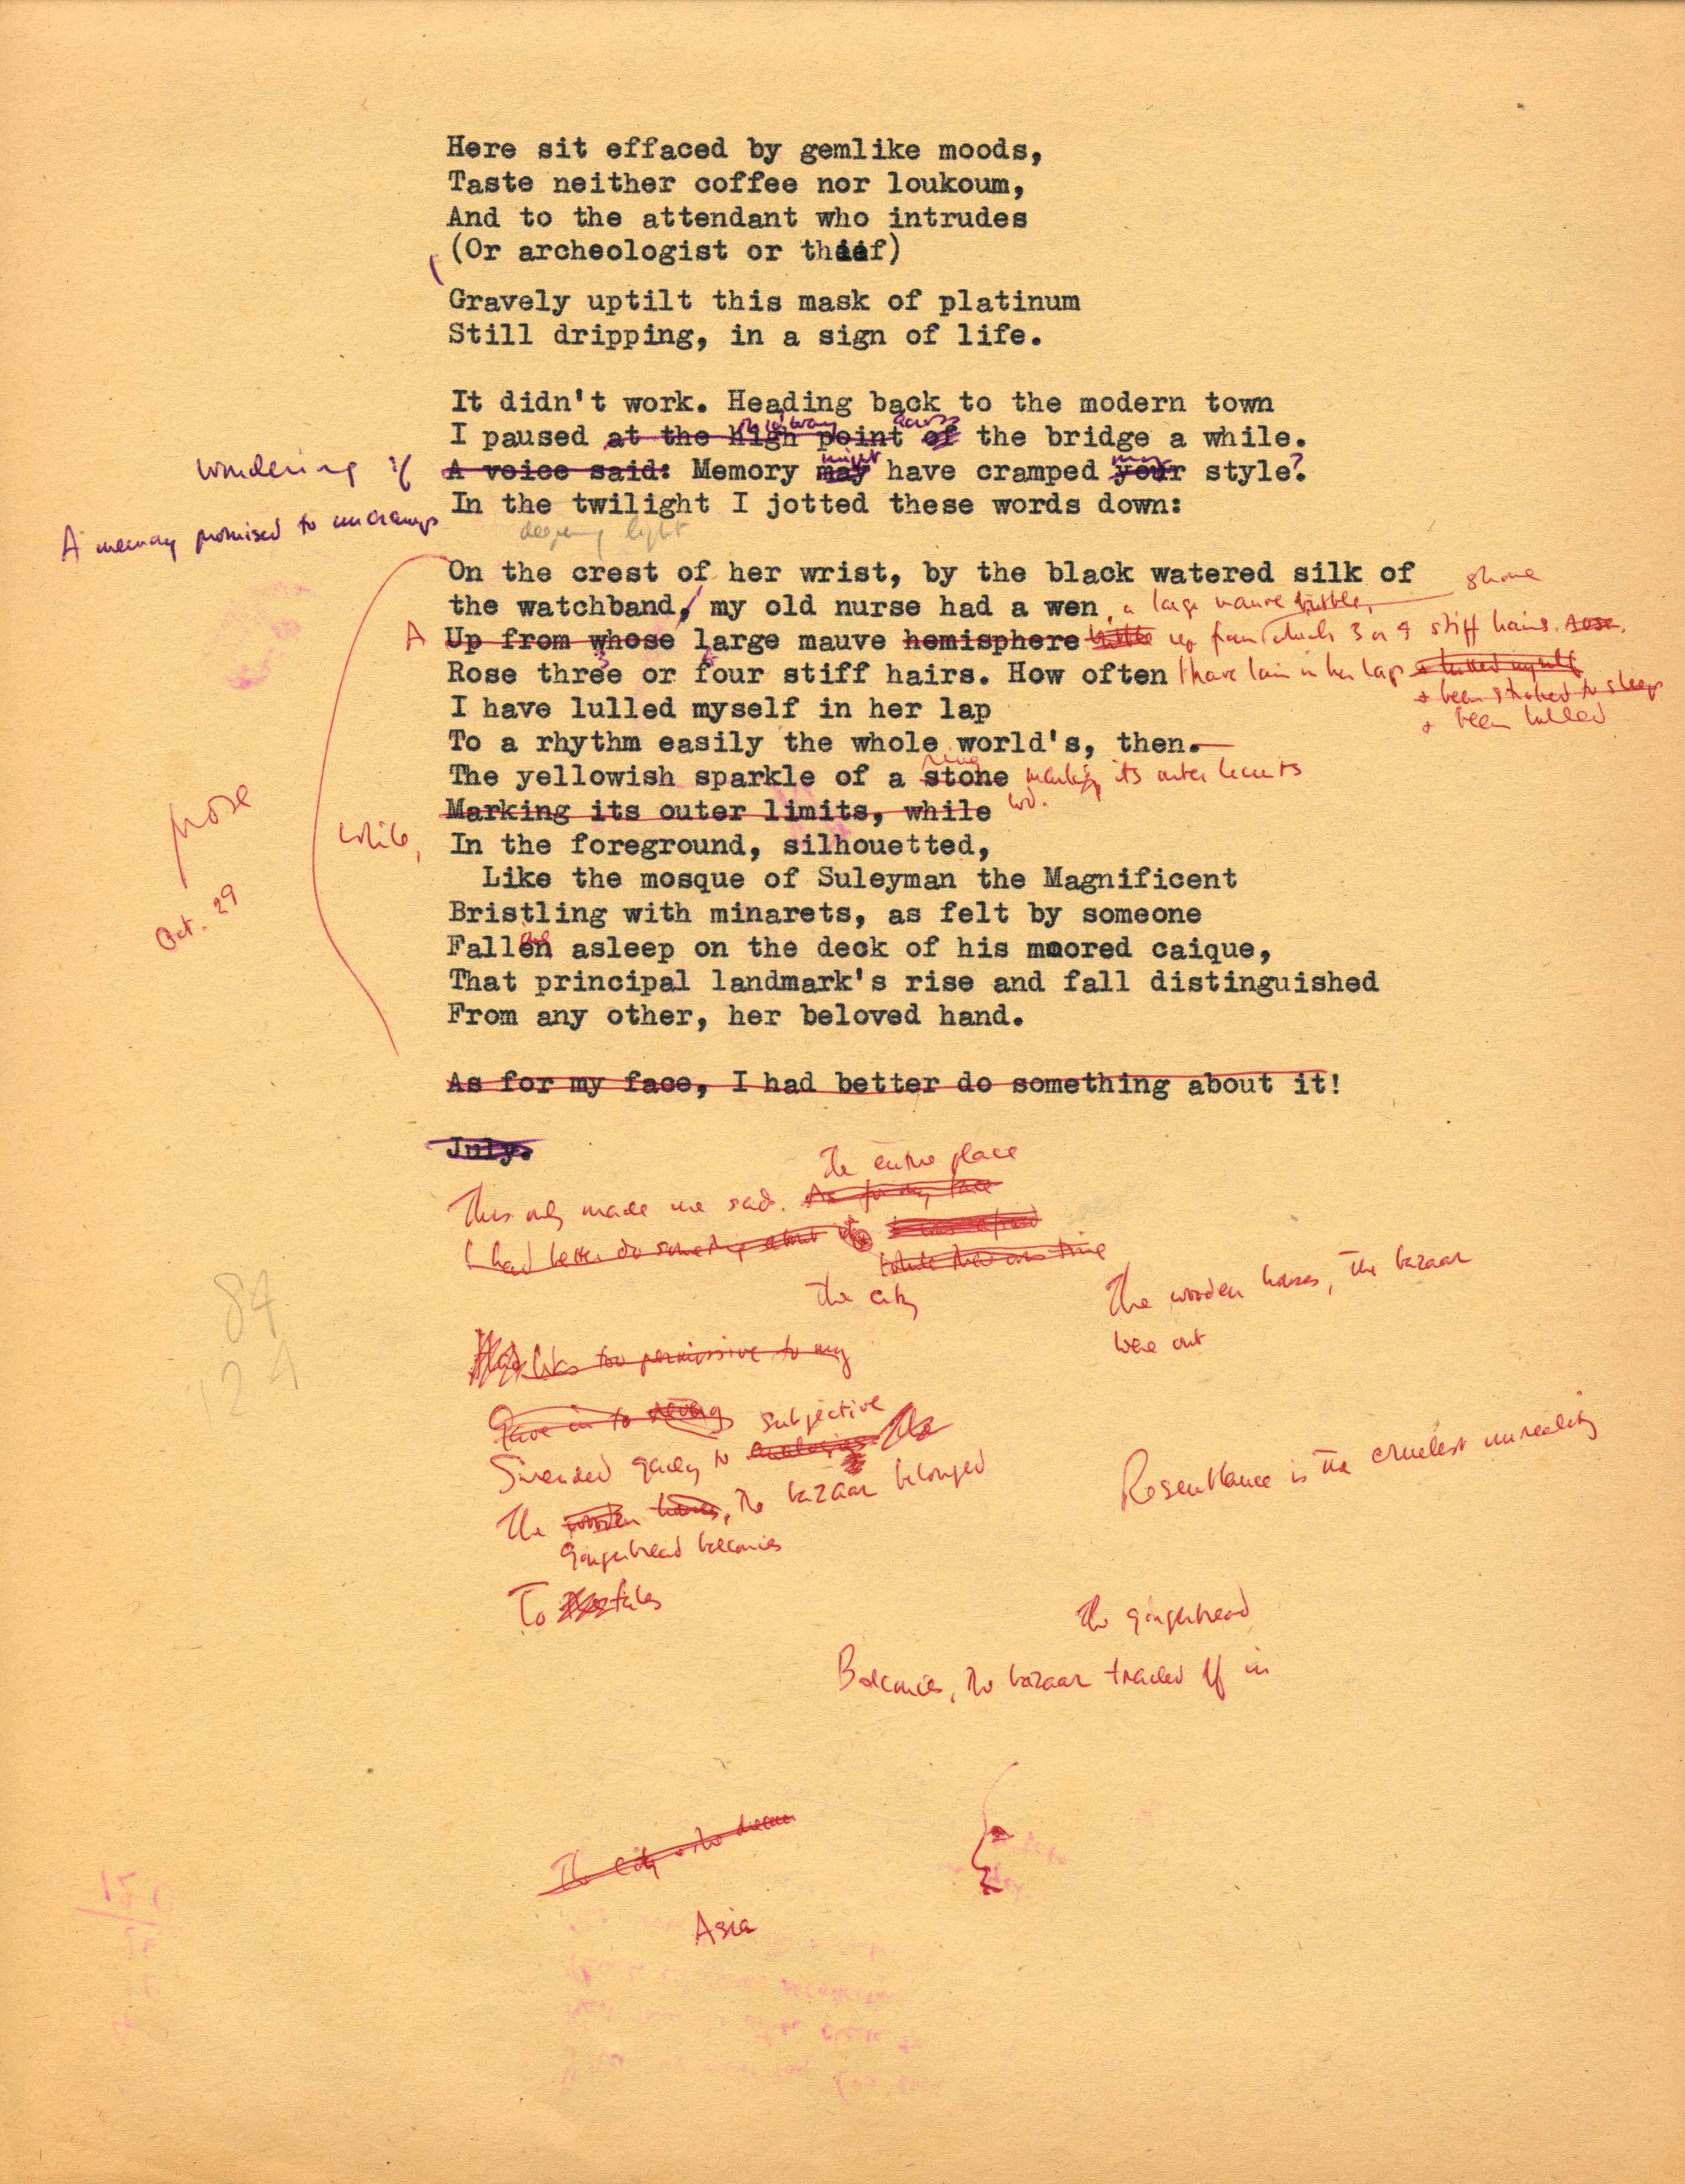 Here sit effaced by gemlike moods,
Taste neither coffee nor loukoum,
And to the attendant who intrudes
(Or archeologist or thief)
Gravely uptilt this mask of platinum
Still dripping, in a sign of life.
It didn't work. Heading back to the modern town
across
I paused at the high point of the bridge a while.
might my
wondering if A voice said: Memory may have cramped your style?
In the twilight I jotted these words down:
A memory promised to uncramp
deepening light
On the crest of her wrist, by the black watered silk of
shone
the watchband, my old nurse had a wen, a large mauve bubble,
A Up from whose large mauve hemisphere up from which 3 or 4 stiff hairs. rose.
Rose three or four stiff hairs. How often I have lain in her lap & lulled myself
& been stroked to sleep
I have lulled myself in her lap
& been lulled
To a rhythm easily the whole world's, then.
ring
The yellowish sparkle of a stone marking its outer limits
Marking its outer limits, while
prose
while, In the foreground, silhouetted,
Like the mosque of Suleyman the Magnificent
Oct. 29
Bristling with minarets, as felt by someone
ing
Fallen asleep on the deck of his moored caique,
That principal landmark's rise and fall distinguished
From any other, her beloved hand.
As for my face, I had better do something about it!
July.
The entire place
This only made me sad. As for my face
I had better do something about it I was afraid
while there was time
The city
The wooden houses, the bazaar
were out
84
124
Was too permissive to my
Gave in to
subjective
Surrendered gladly to analogies
Resemblance is the cruelest unreality
The wooden houses, the bazaar belonged
Gingerbread balconies
To tales
The gingerbread
Balconies, the bazaar traded off in
The city the dream
Asia